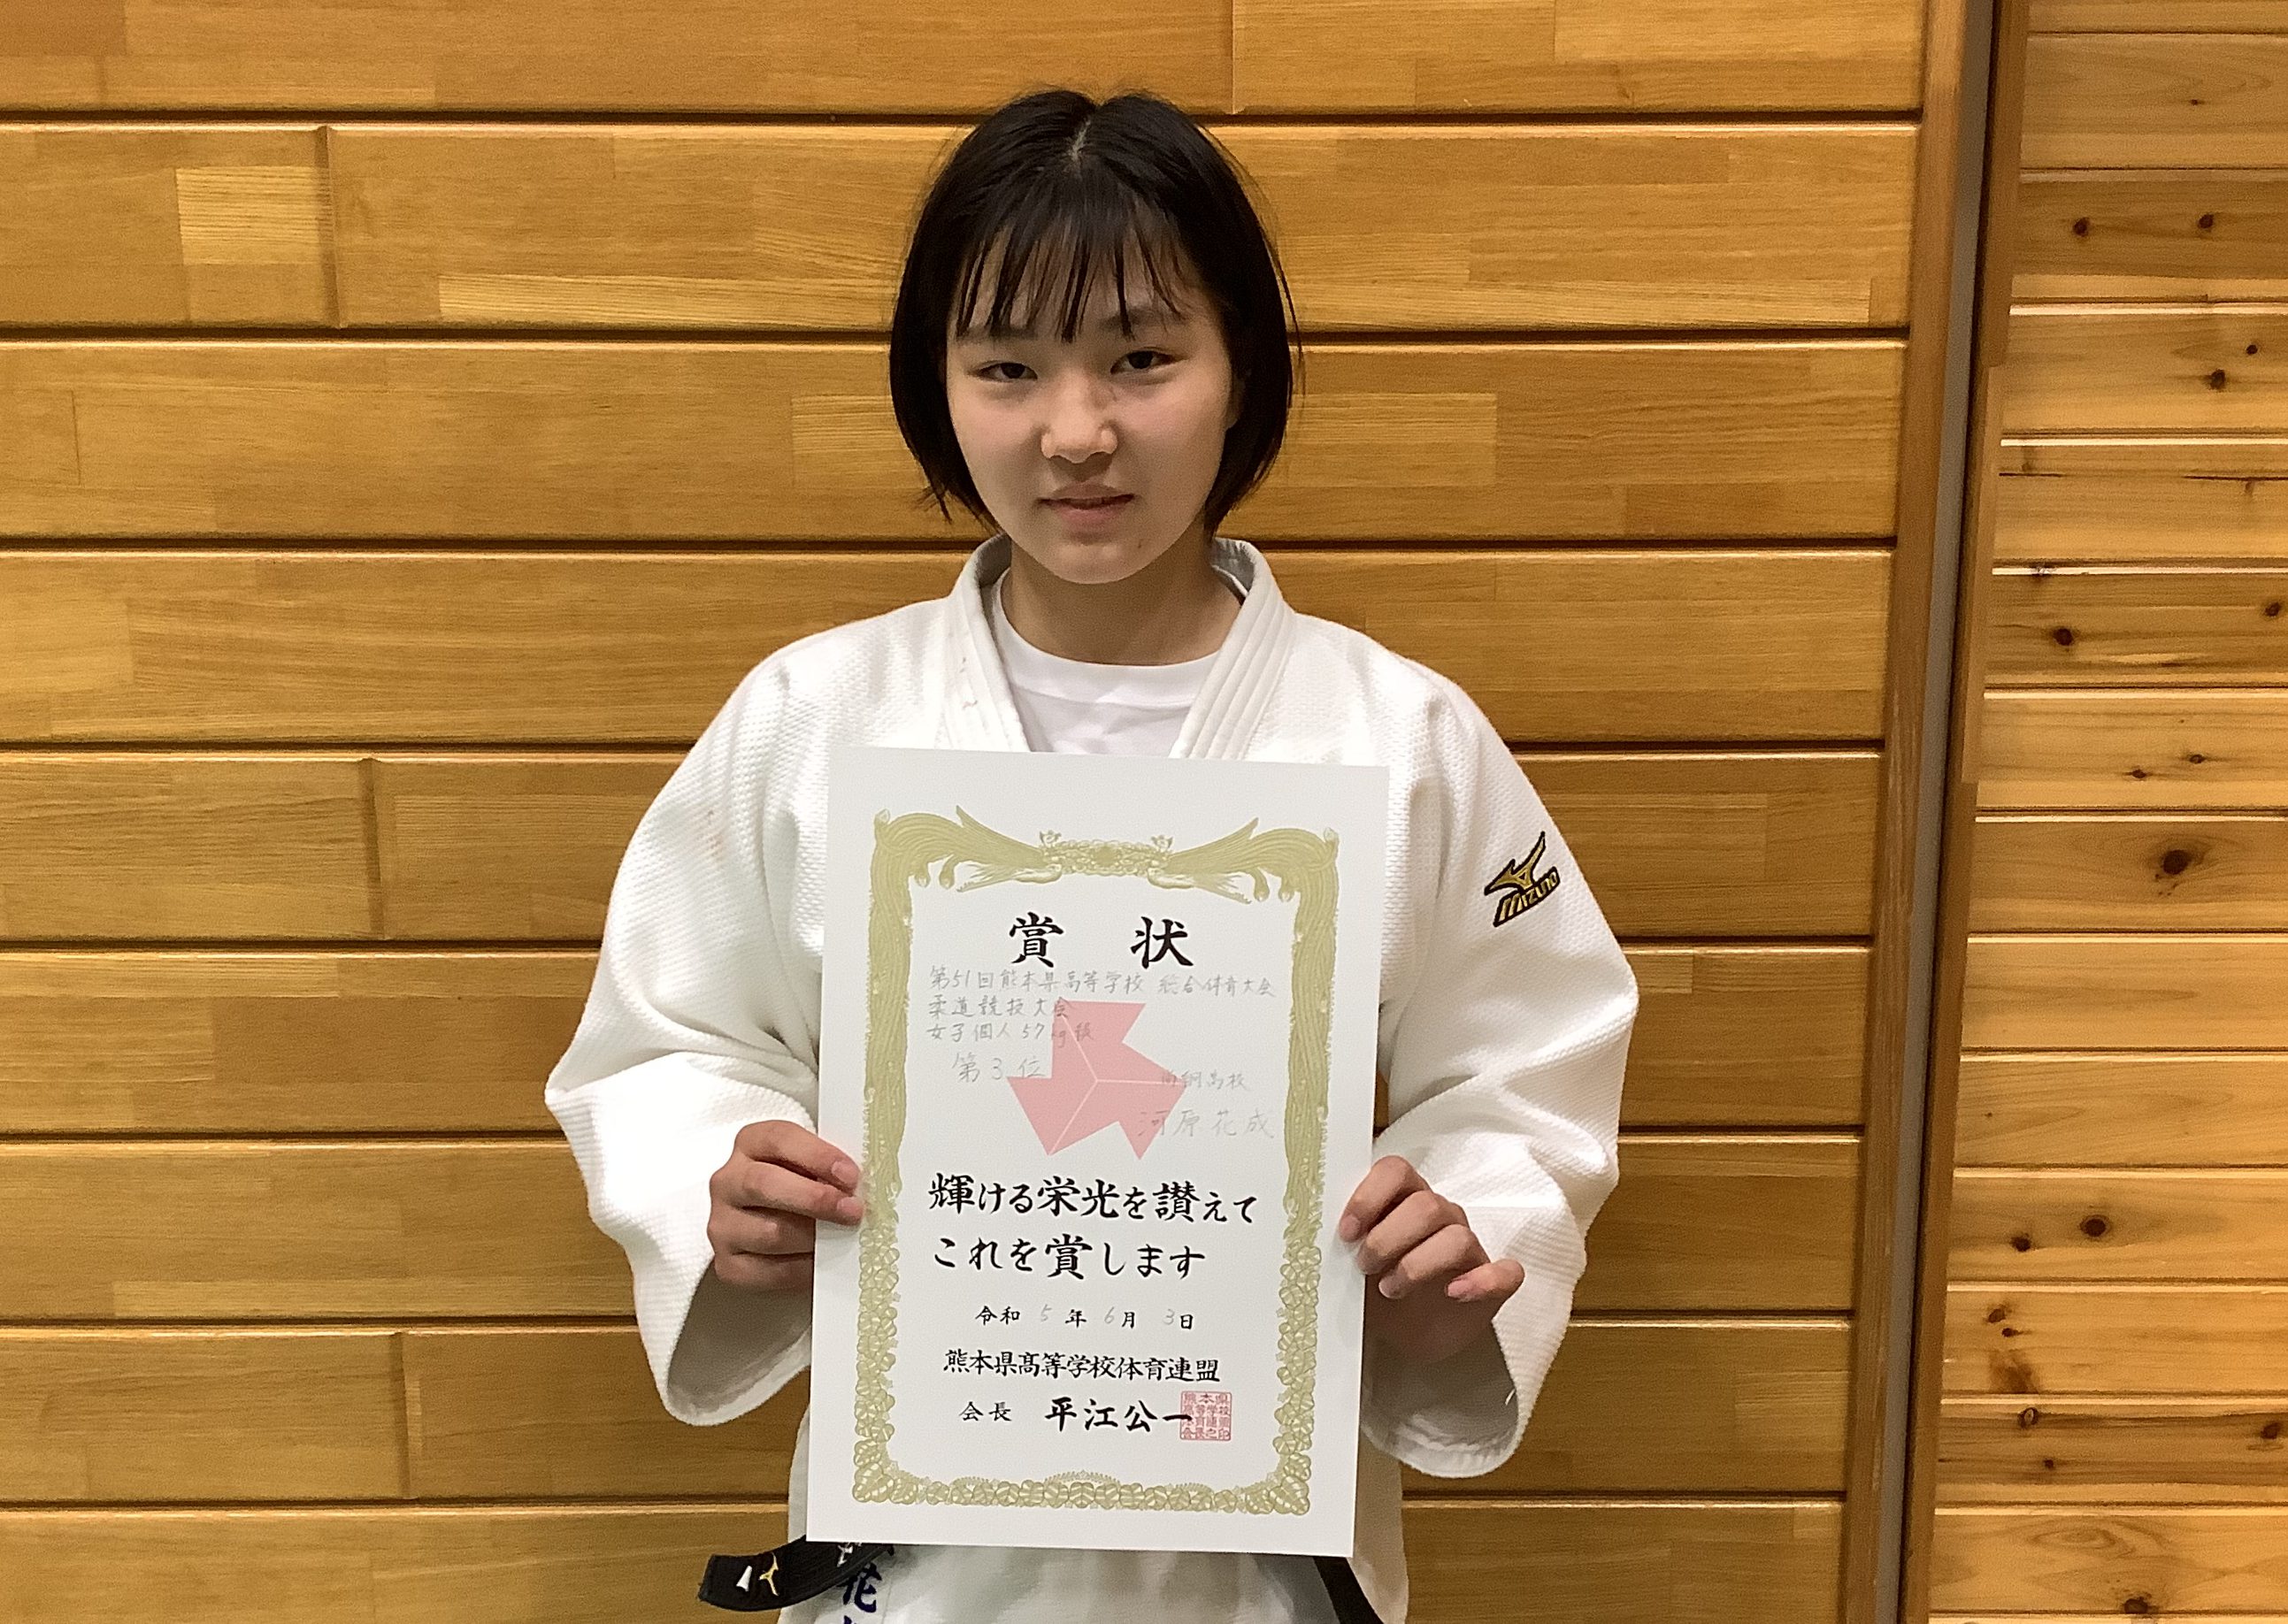 賞状
第51回熊本県高等学校 総合体育大会
柔道競技大会
女子個人57kg級
第3位
尚絅高校
河原花成
輝ける栄光を讃えて
これを賞します
令和5年6月3日
熊本県髙等学校体育連盟
会長 平江公一
MIZUNO
花